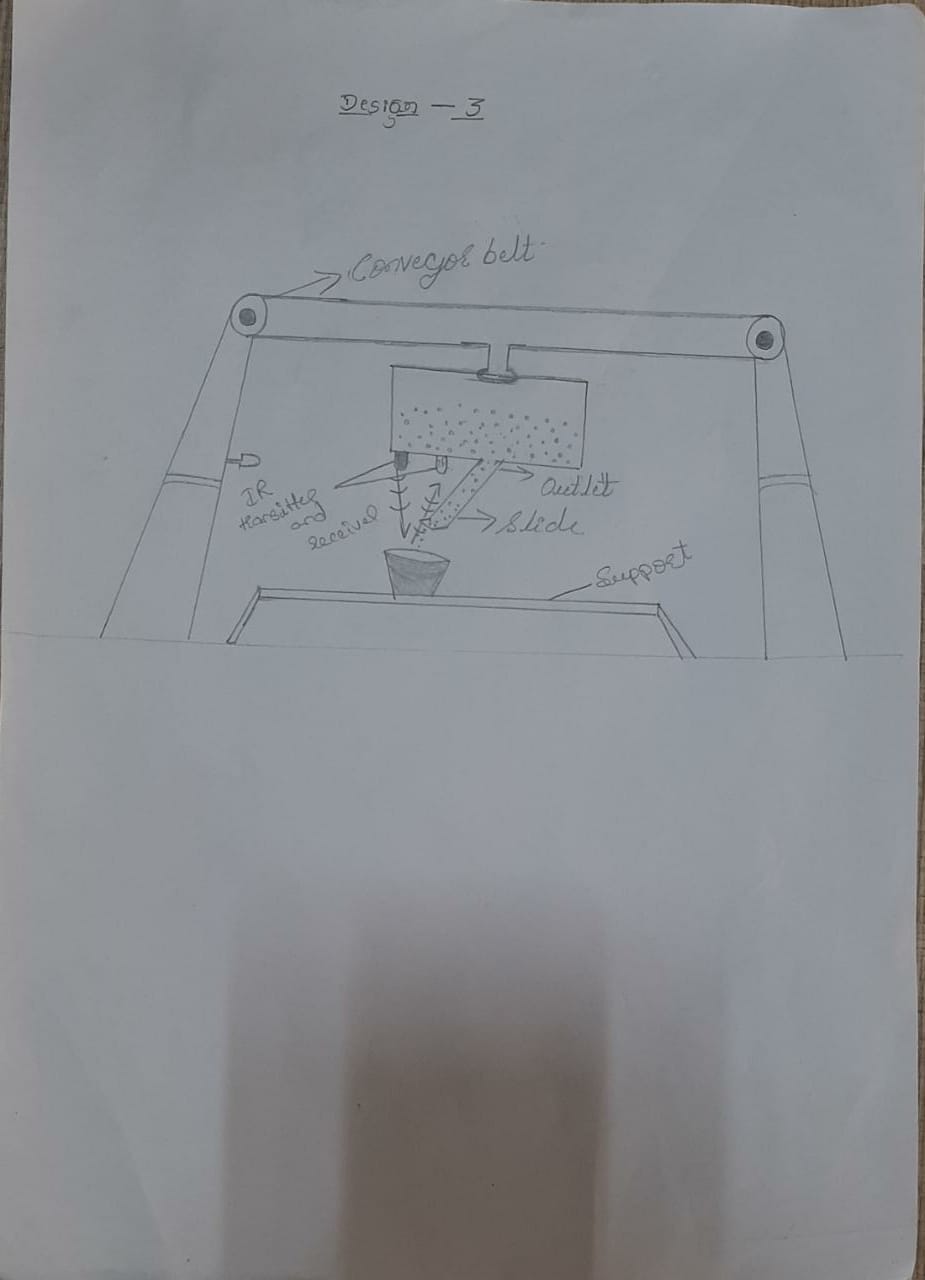 Design - 3
Conveyor belt
IR
transitter
and
receival
Outlet
Slide
Support